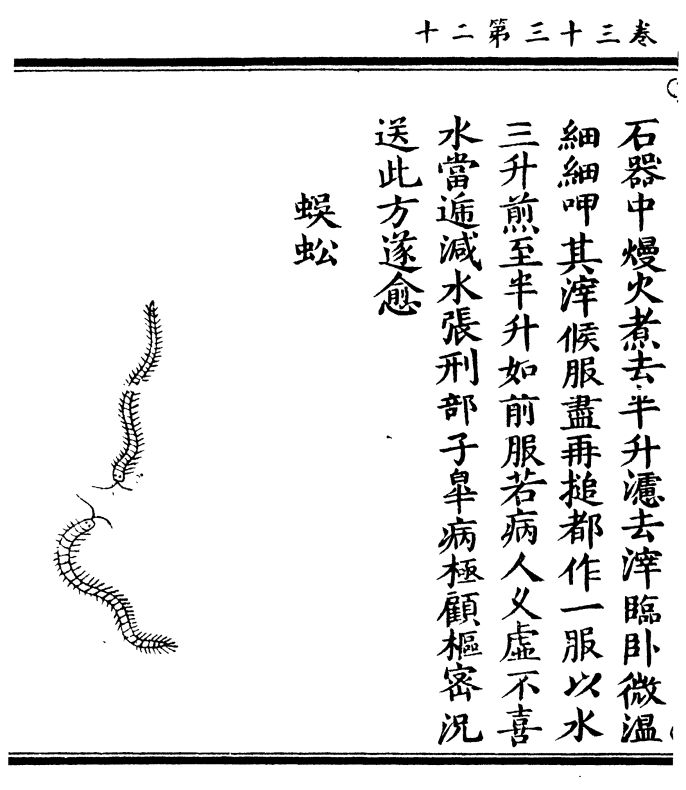 卷三十三第二十
石器中熳火煮去半升濾去滓臨卧微溫
細細呷其滓候服盡再搥都作一服以水
三升煎至半升如前服若病人乂虛不喜
水當遞減水張刑部子臯病極顧樞密況
送此方遂愈
蜈蚣